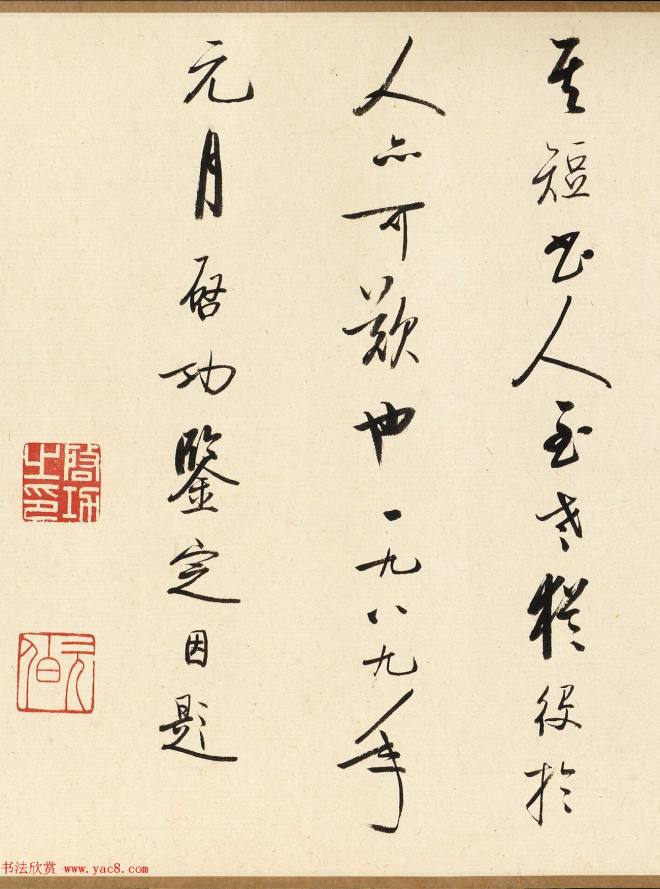 其短书人至老犹役於
人亦可叹也一九八九年
元月启功鉴定因题
启功之印
元伯
书法欣赏 www.yac8.com